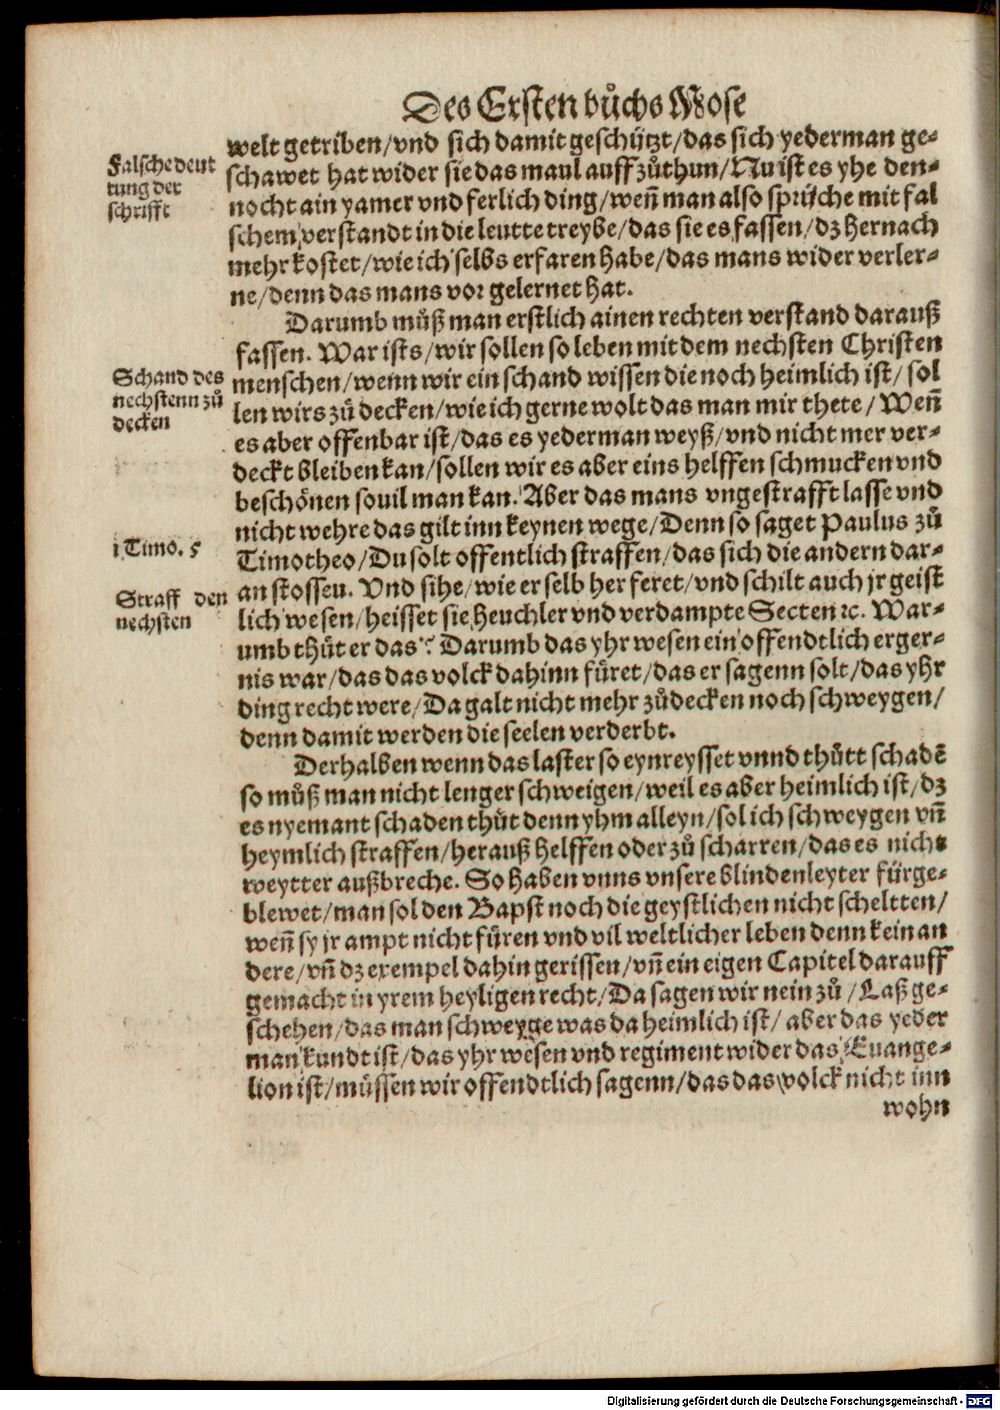 Des Ersten bůchs Mose
welt getriben/vnd sich damit geschützt/das sich yederman ge-
schawet hat wider sie das maul auff zůthun/Nu ist es yhe den-
nocht ain yamer vnd ferlich ding/weñ man also sprüche mit fal
schem verstandt in die leutte treybe/das sie es fassen/dz hernach
mehr kostet/wie ich selbs erfaren habe/das mans wider verler-
ne/denn das mans vor gelernet hat.
Falsche deut
tung der
schrifft
Darumb můß man erstlich ainen rechten verstand darauß
fassen. War ists/wir sollen so leben mit dem nechsten Christen
menschen/wenn wir ein schand wissen die noch heimlich ist/sol
len wirs zů decken/wie ich gerne wolt das man mir thete/Weñ
es aber offenbar ist/das es yederman weyß/vnd nicht mer ver-
deckt bleiben kan/sollen wir es aber eins helffen schmucken vnd
beschönen souil man kan. Aber das mans vngestrafft lasse vnd
nicht wehre das gilt inn keynen wege/Denn so saget Paulus zů
Timotheo/Du solt offentlich straffen/das sich die andern dar-
an stossen. Vnd sihe/wie er selb her feret/vnd schilt auch jr geist
lich wesen/heisset sie Heuchler vnd verdampte Secten ꝛc. War-
umb thůt er das? Darumb das yhr wesen ein offendtlich erger-
nis war/das das volck dahinn füret/das er sagenn solt/das yhr
ding recht were/Da galt nicht mehr zůdecken noch schweygen/
denn damit werden die seelen verderbt.
Schand des
nechstenn zů
decken
i Timo. 5
Straff den
nechsten
Derhalben wenn das laster so eynreysset vnnd thůtt schadē
so můß man nicht lenger schweigen/weil es aber heimlich ist/dz
es nyemant schaden thůt denn yhm alleyn/sol ich schweygen vñ
heymlich straffen/herauß helffen oder zů scharren/das es nicht
weytter außbreche. So haben vnns vnsere blindenleyter fürge-
blewet/man sol den Bapst noch die geystlichen nicht scheltten/
weñ sy jr ampt nicht füren vnd vil weltlicher leben denn kein an
dere/vñ dz exempel dahin gerissen/vñ ein eigen Capitel darauff
gemacht in yrem heyligen recht/Da sagen wir nein zů/Laß ge-
schehen/das man schweyge was da heimlich ist/aber das yeder
man kundt ist/das yhr wesen vnd regiment wider das Euange-
lion ist/müssen wir offendtlich sagenn/das das volck nicht inn
wohn
Digitalisierung gefördert durch die Deutsche Forschungsgemeinschaft - DFG